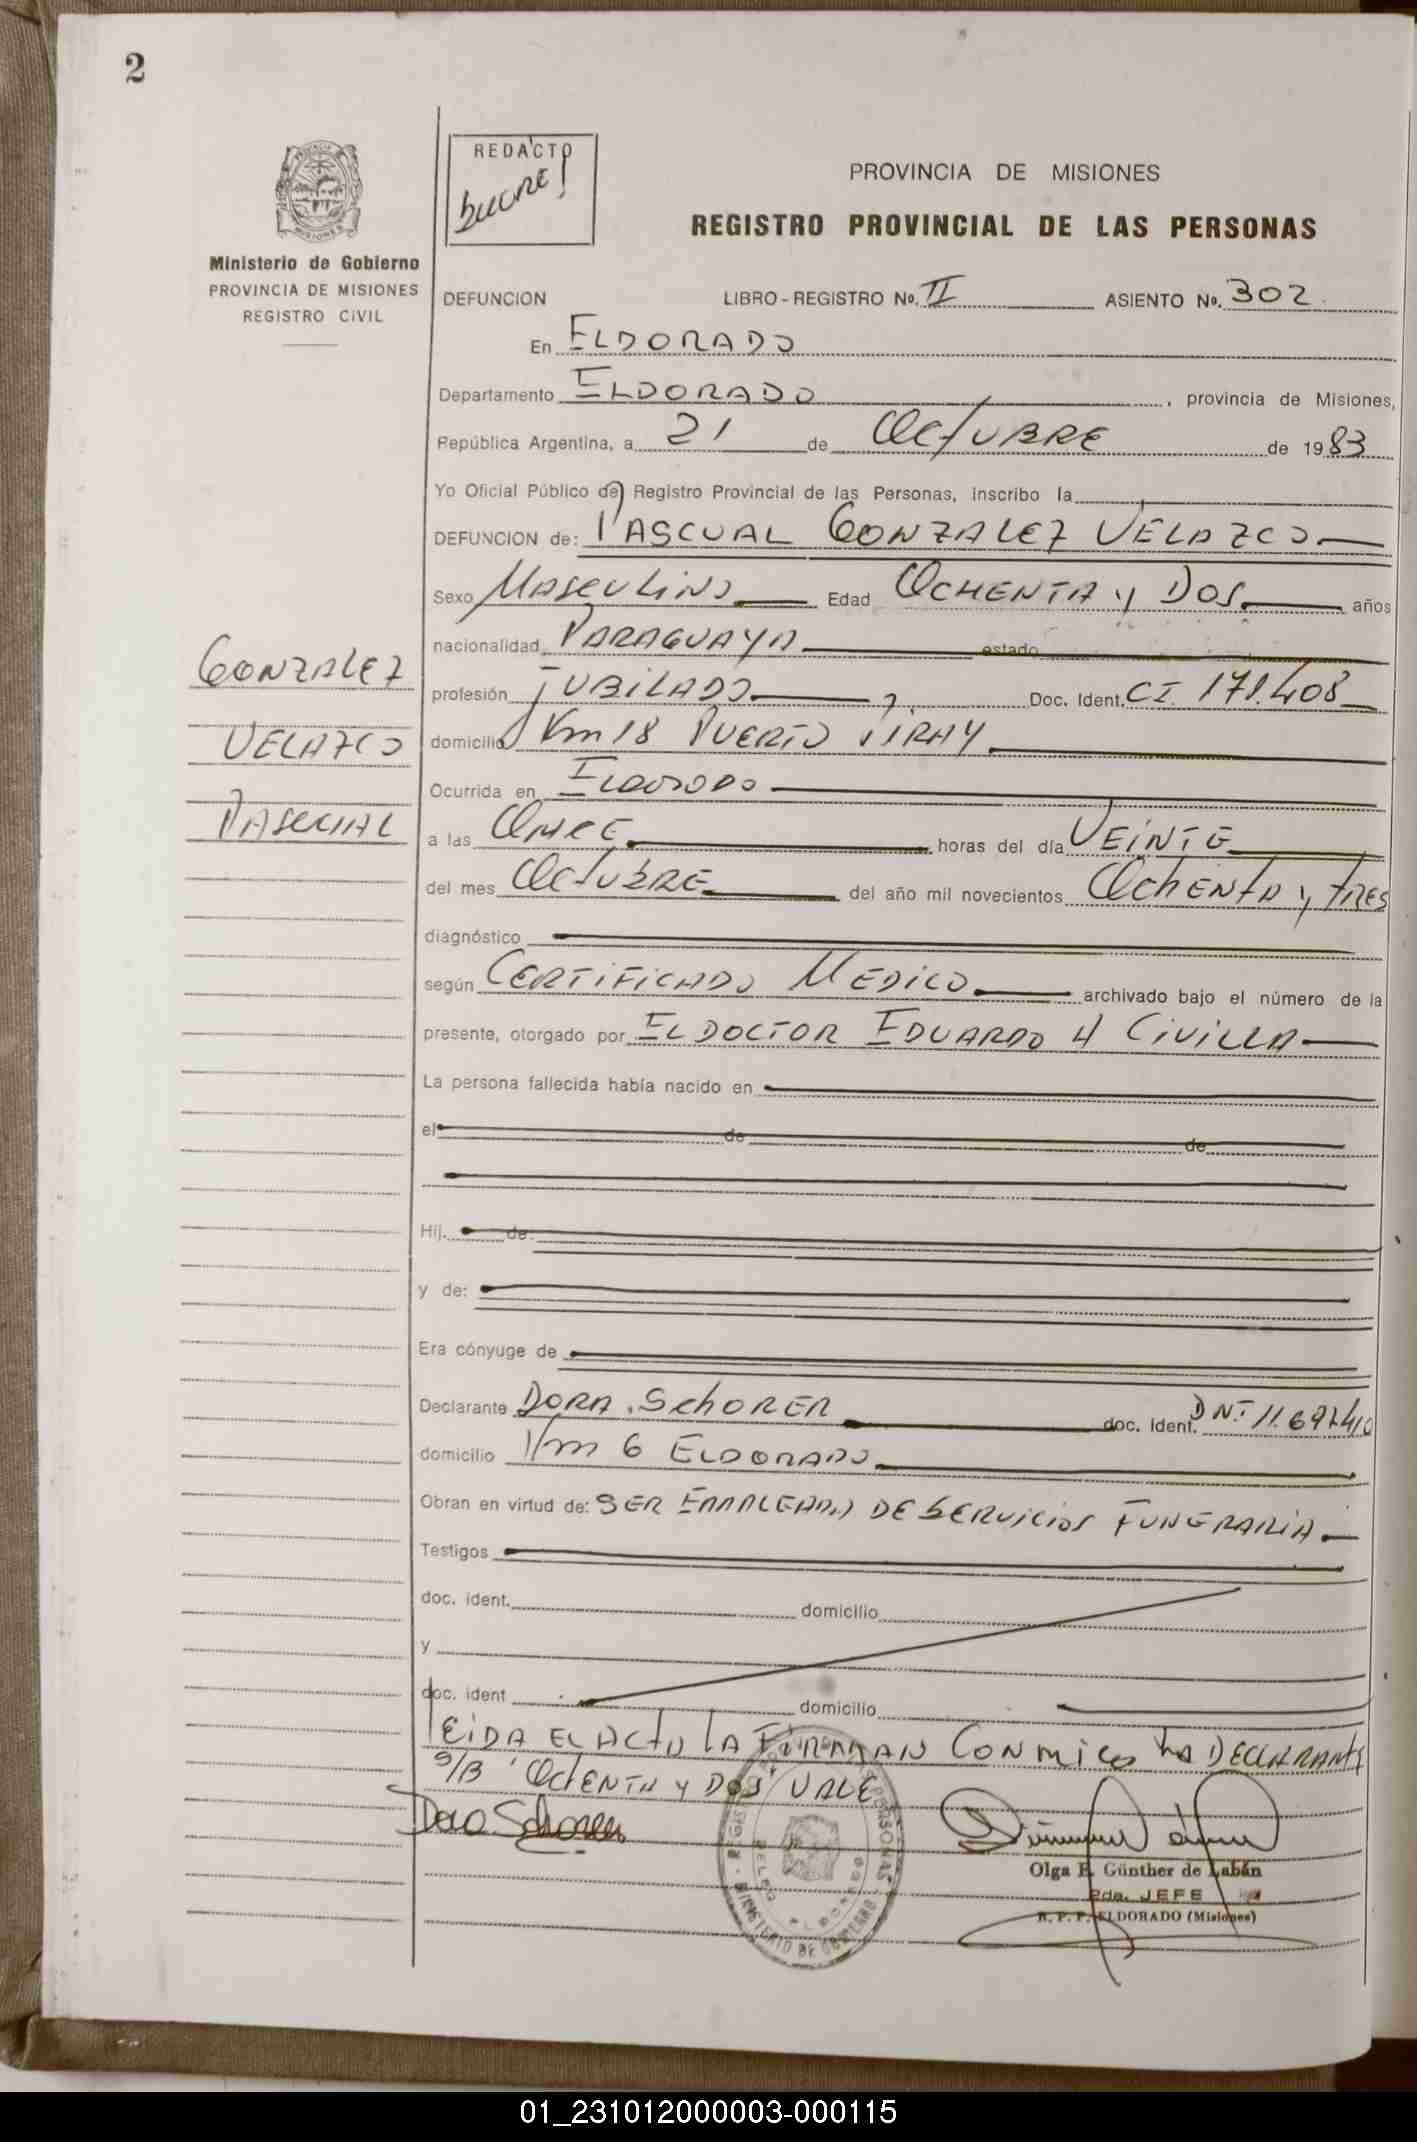 2
Ministerio de Gobierno
PROVINCIA DE MISIONES
REGISTRO CIVIL
REDACTO
SUCRE
PROVINCIA DE MISIONES
REGISTRO PROVINCIAL DE LAS PERSONAS
DEFUNCION LIBRO - REGISTRO No. II ASIENTO No. 302
En ELDORADO
Departamento ELDORADO, provincia de Misiones,
República Argentina, a 21 de OCTUBRE de 1983
Yo Oficial Público del Registro Provincial de las Personas, inscribo la
DEFUNCION de: PASCUAL GONZALEZ VELAZCO
Sexo MASCULINO Edad OCHENTA y DOS años
nacionalidad PARAGUAYA estado
profesión JUBILADO Doc. Ident. CI. 171.408
domicilio Km 18 PUERTO PIRAY
Ocurrida en ELDORADO
a las ONCE horas del día VEINTE
del mes OCTUBRE del año mil novecientos OCHENTA y TRES
GONZALEZ
VELAZCO
PASCUAL
diagnóstico
según CERTIFICADO MEDICO archivado bajo el número de la
presente, otorgado por EL DOCTOR EDUARDO H CIVILLA
La persona fallecida había nacido en
el de de
Hij. de:
y de:
Era cónyuge de
Declarante DORA SCHORER doc. Ident. DNI
domicilio Km 6 ELDORADO
Obran en virtud de: SER EMPLEADA DE SERVICIOS FUNERARIA
Testigos
doc. ident. domicilio
y
doc. ident domicilio
LEIDA EL ACTA LA FIRMAN CONMIGO LA DECLARANTE
S/B OCHENTA Y DOS VALE
Dora Schorer
REGISTRO PROVINCIAL DE LAS PERSONAS
MINISTERIO DE GOBIERNO
Olga E. Günther de Labán
2da. JEFE
R. P. P. ELDORADO (Misiones)
01_231012000003-000115